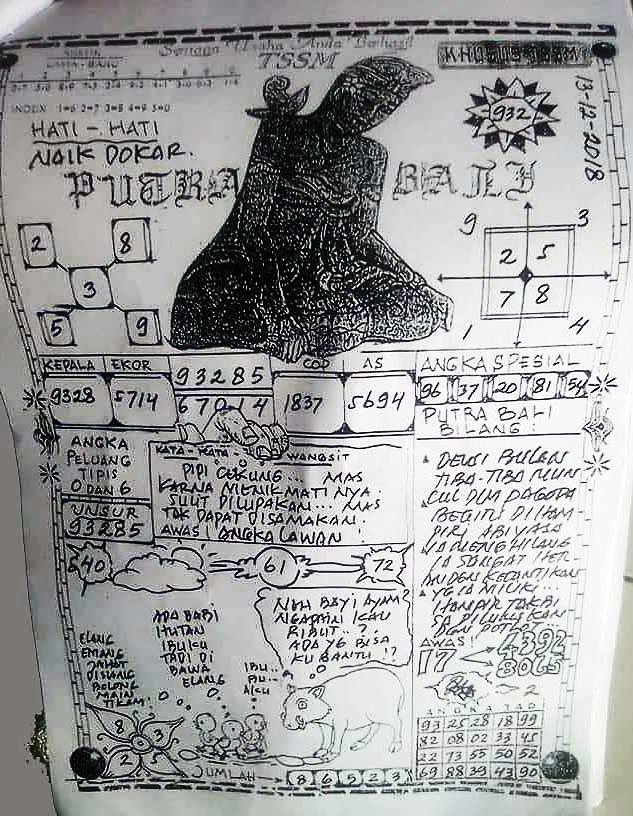 Semoga Usaha Anda Berhasil
TSSM
13-12-2018
932
INDEX 1=6 2=7 3=8 4=9 5=0
HATI - HATI
NAIK DOKAR.
PUTRA BALI
2 8
3
5 9
9 3
2 5
7 8
1 4
KEPALA EKOR
9328 5714
93285
67014
COP AS
1837 5694
ANGKA SPESIAL
96 37 20 81 54
PUTRA BALI
BILANG :
ANGKA
PELUANG
TIPIS
0 DAN 6
UNSUR
93285
KATA-KATA WANGSIT
PIPI CEKUNG... MAS
KARNA MENIKMATI NYA.
SULIT DILUPAKAN... MAS
TAK DAPAT DISAMAKAN.
AWAS! ANGKA LAWAN!
DEWI BULAN
TIBA-TIBA MUN
CUL DLM PAGODA
BEGITU DIHAM
PIRI ABIYASA
IA MENGHILANG
IA SANGAT TER
KECANTIKAN
YG IA MILIKI...
AWAS!
17 4392
8065
540 61 72
ELANG
EMANG
JAHAT
DISIANG
BOLONG
MAIN
TIKAM.
ADA BABI
HUTAN
IBUKU
TADI DI
BAWA
ELANG
IBU..
NAH BAYI AYAM
NGAPAIN KAU
RIBUT..?
ADA YG BISA
KU BANTU !?
8 3
2 5
JUMLAH 8 6 5 2 3
2
ANGKA JADI
93 25 28 18 99
82 08 02 33 45
22 73 55 50 52
69 88 39 43 90